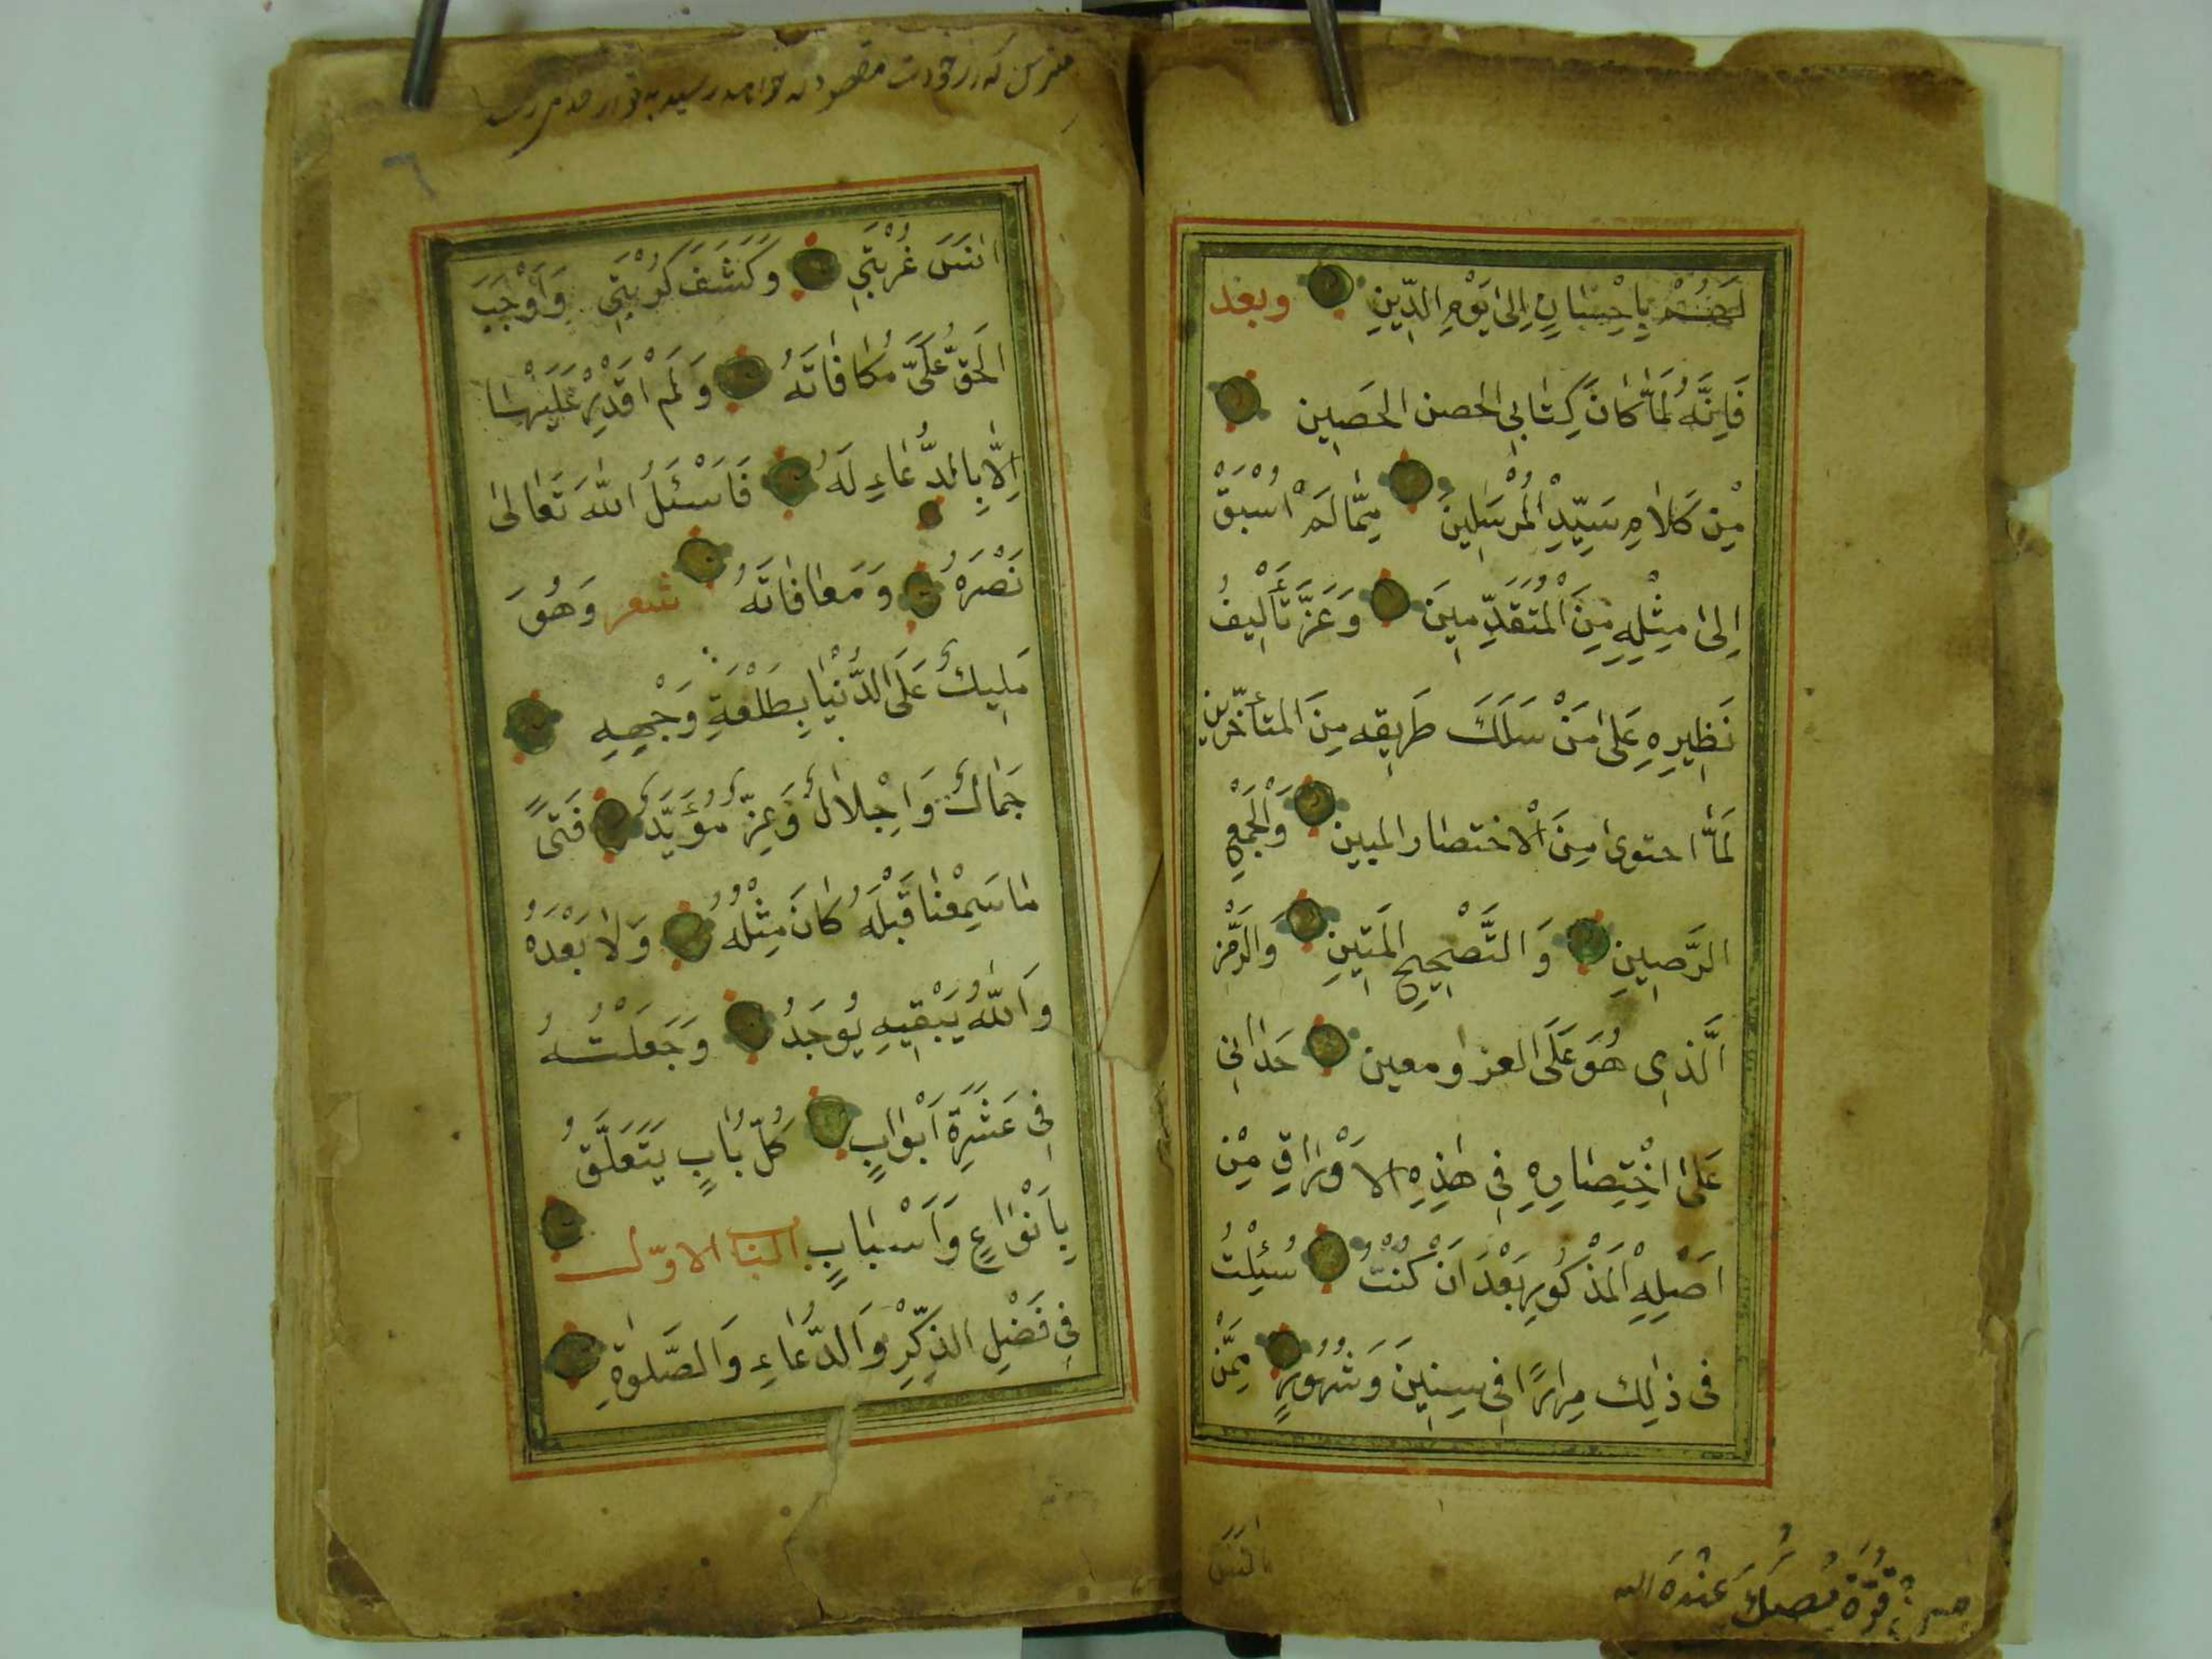 لَهُمْ بِاِحْسَانٍ اِلىٰ يَوْمِ الدِّينِ وبعد
فَاِنَّهُ لَمَّا كَانَ كِتَابِي الحصن الحَصِين
مِنْ كَلَامِ سَيِّدِ الْمُرْسَلِينَ مِمَّا لَمْ اُسْبَقْ
اِلىٰ مِثْلِهِ مِنَ الْمُتَقَدِّمِينَ وَعَزَّ تَأْلِيفُ
نَظِيرِهِ عَلىٰ مَنْ سَلَكَ طَرِيقه مِنَ المتأخّرين
لَمَّا احتوى مِنَ الْاختصار المبين وَالْجَمْعِ
الرَّصِينِ وَ التَّصْحِيحِ المَتِينِ وَالرَّمْزِ
الَّذِي هُوَ عَلَى العزو معين حَدَانِي
عَلىٰ اخْتِصَارِهِ فِي هٰذِهِ الاَوْرَاقِ مِنْ
اَصْلِهِ الْمَذْكُورِ بَعْدَ اَنْ كُنْتُ سُئِلْتُ
فى ذٰلِك مِرَارًا فِي سِنِينَ وَشُهُورٍ مِمَّنْ
انَسَ غُرْبَتِي وَكَشَفَ كُرْبَتِي وَاَوْجَبَ
الحَقُّ عَلَيَّ مُكَافَاتَهُ وَلَمْ اَقْدِرْ عَلَيْهَا
اِلَّا بِالدُّعَاءِ لَهُ فَاَسْئَلُ اللّٰهَ تَعَالىٰ
نَصْرَهُ وَمَعَافَاتَهُ شعر وَهُوَ
مَلِيكٌ عَلَى الدُّنْيَا بِطَلْعَةِ وَجْهِهِ
جَمَالٌ وَاِجْلَالٌ وَعِزٌّ مُؤَيَّدٌ فَتىً
مَا سَمِعْنَا قَبْلَهُ كَانَ مِثْلُهُ وَلَا بَعْدَهُ
وَاللّٰهُ يُبْقِيهِ يُوجَدُ وَجَعَلْتُهُ
فِي عَشَرَةِ اَبْوَابٍ كُلُّ بَابٍ يَتَعَلَّقُ
بِاَنْوَاعٍ وَاَسْبَابٍ الباب الاوّل
فِي فَضْلِ الذِّكْرِ وَالدُّعَاءِ وَالصَّلوٰةِ